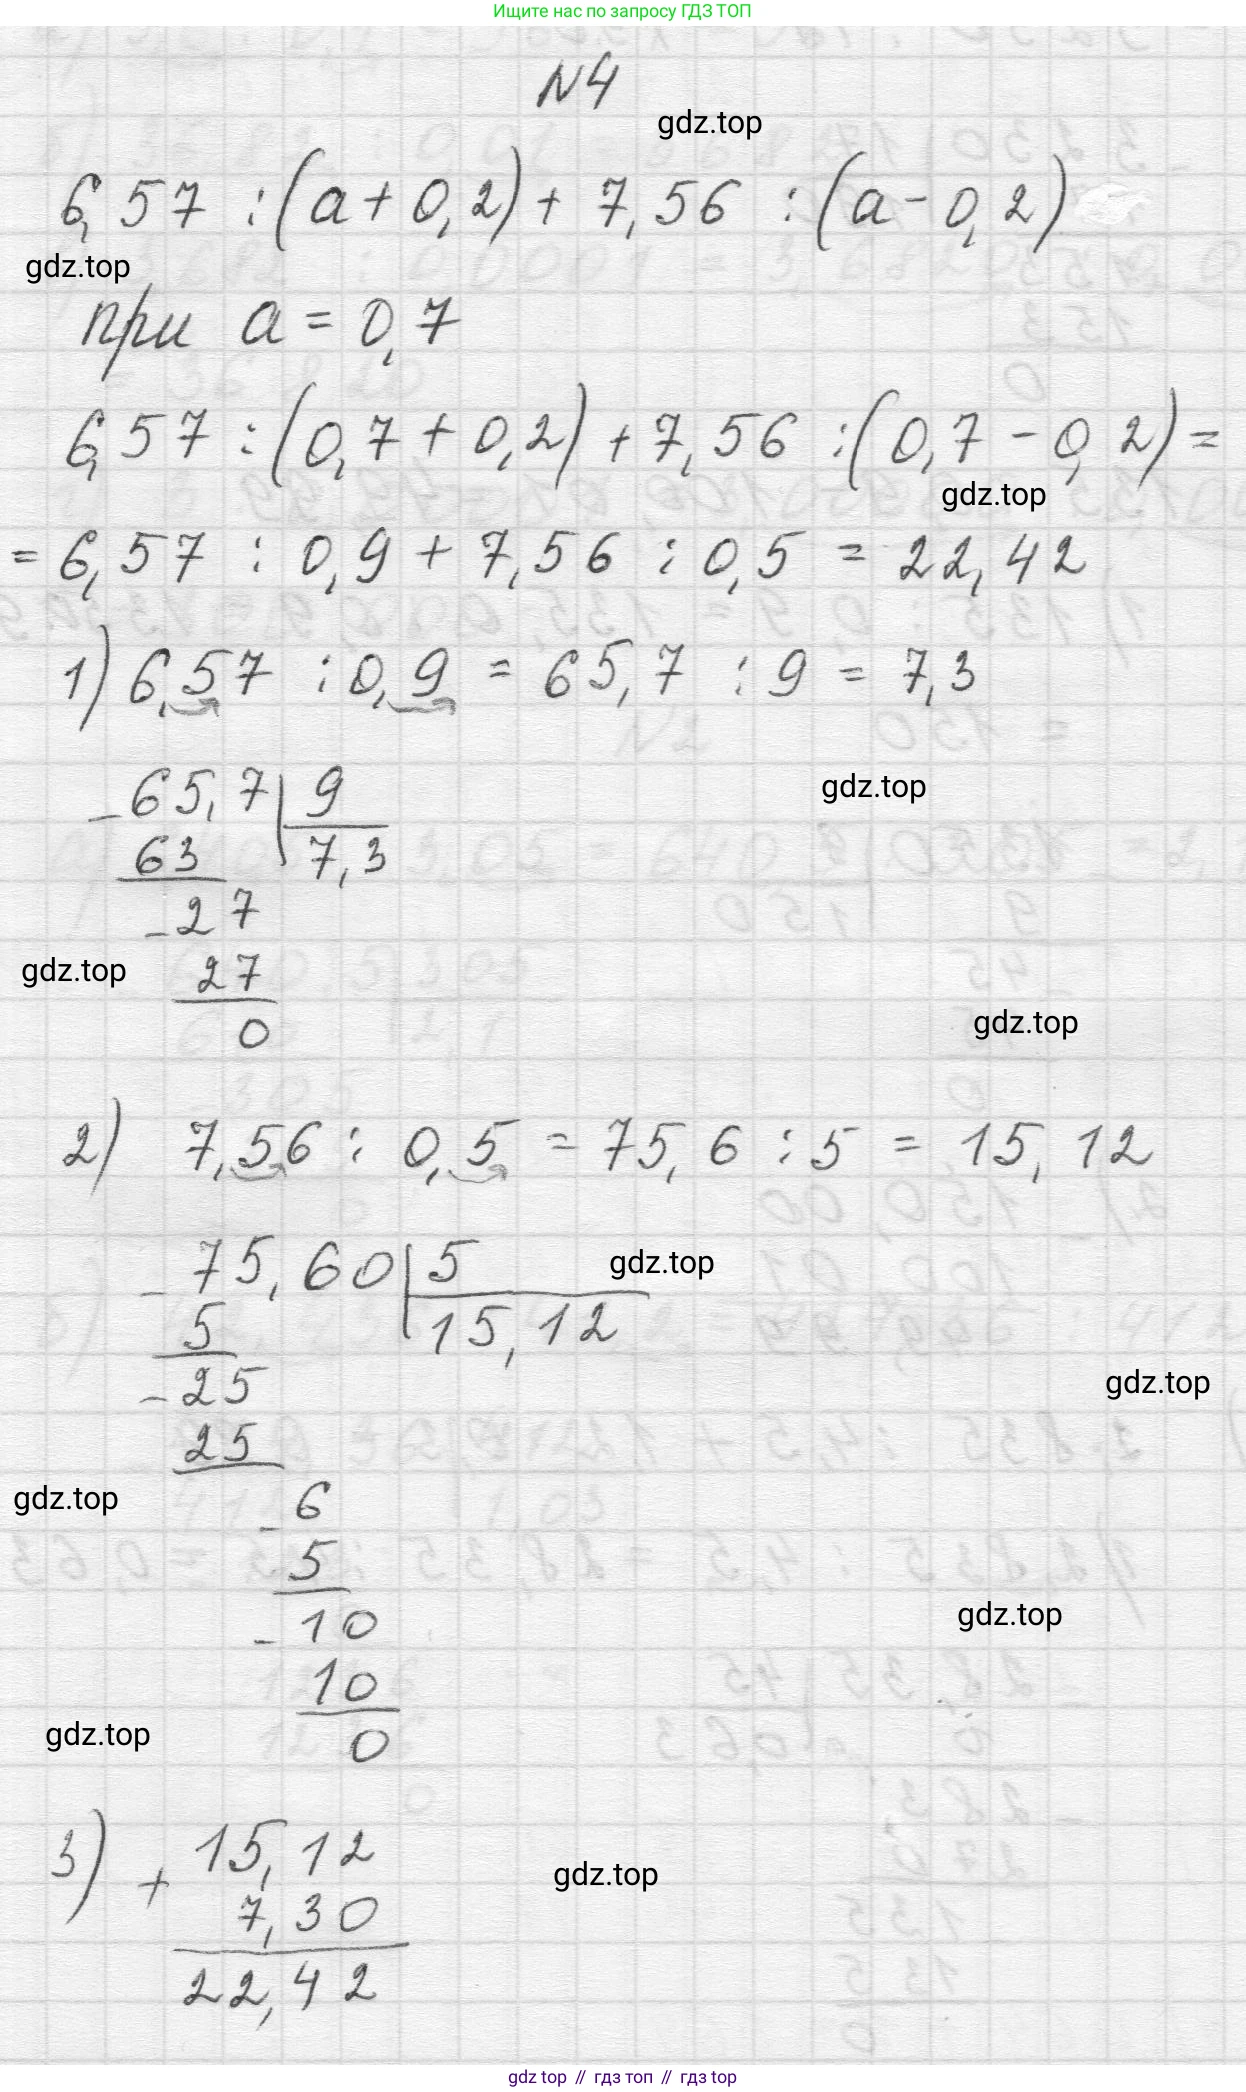 Ищите нас по запросу ГДЗ ТОП
N4
gdz.top
6,57 : (а + 0,2) + 7,56 : (а - 0,2)
gdz.top
при а = 0,7
6,57 : (0,7 + 0,2) + 7,56 : (0,7 - 0,2) =
gdz.top
= 6,57 : 0,9 + 7,56 : 0,5 = 22,42
1) 6,57 : 0,9 = 65,7 : 9 = 7,3
- 65,7 | 9
gdz.top
63 7,3
- 27
gdz.top
27
gdz.top
0
2) 7,56 : 0,5 = 75,6 : 5 = 15,12
- 75,60 | 5
gdz.top
5 15,12
- 25
gdz.top
25
gdz.top
- 6
5
gdz.top
- 10
10
gdz.top
0
3) + 15,12
gdz.top
7,30
22,42
gdz top // гдз топ // gdz top